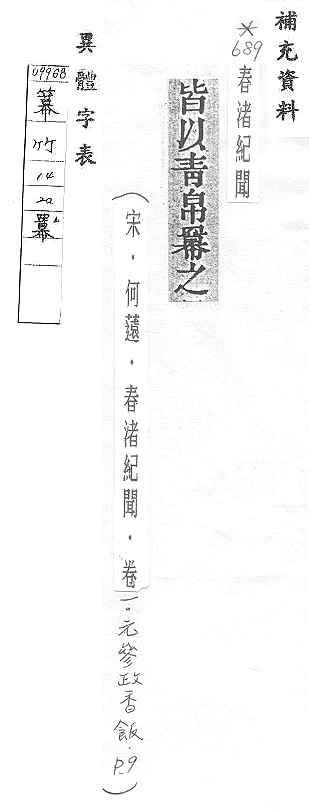 補充資料
※
689
春渚紀聞
皆以青帛羃之
(宋．何薳．春渚紀聞．卷一．元參政香飯．P.9)
異體字表
09968
竹
14
20